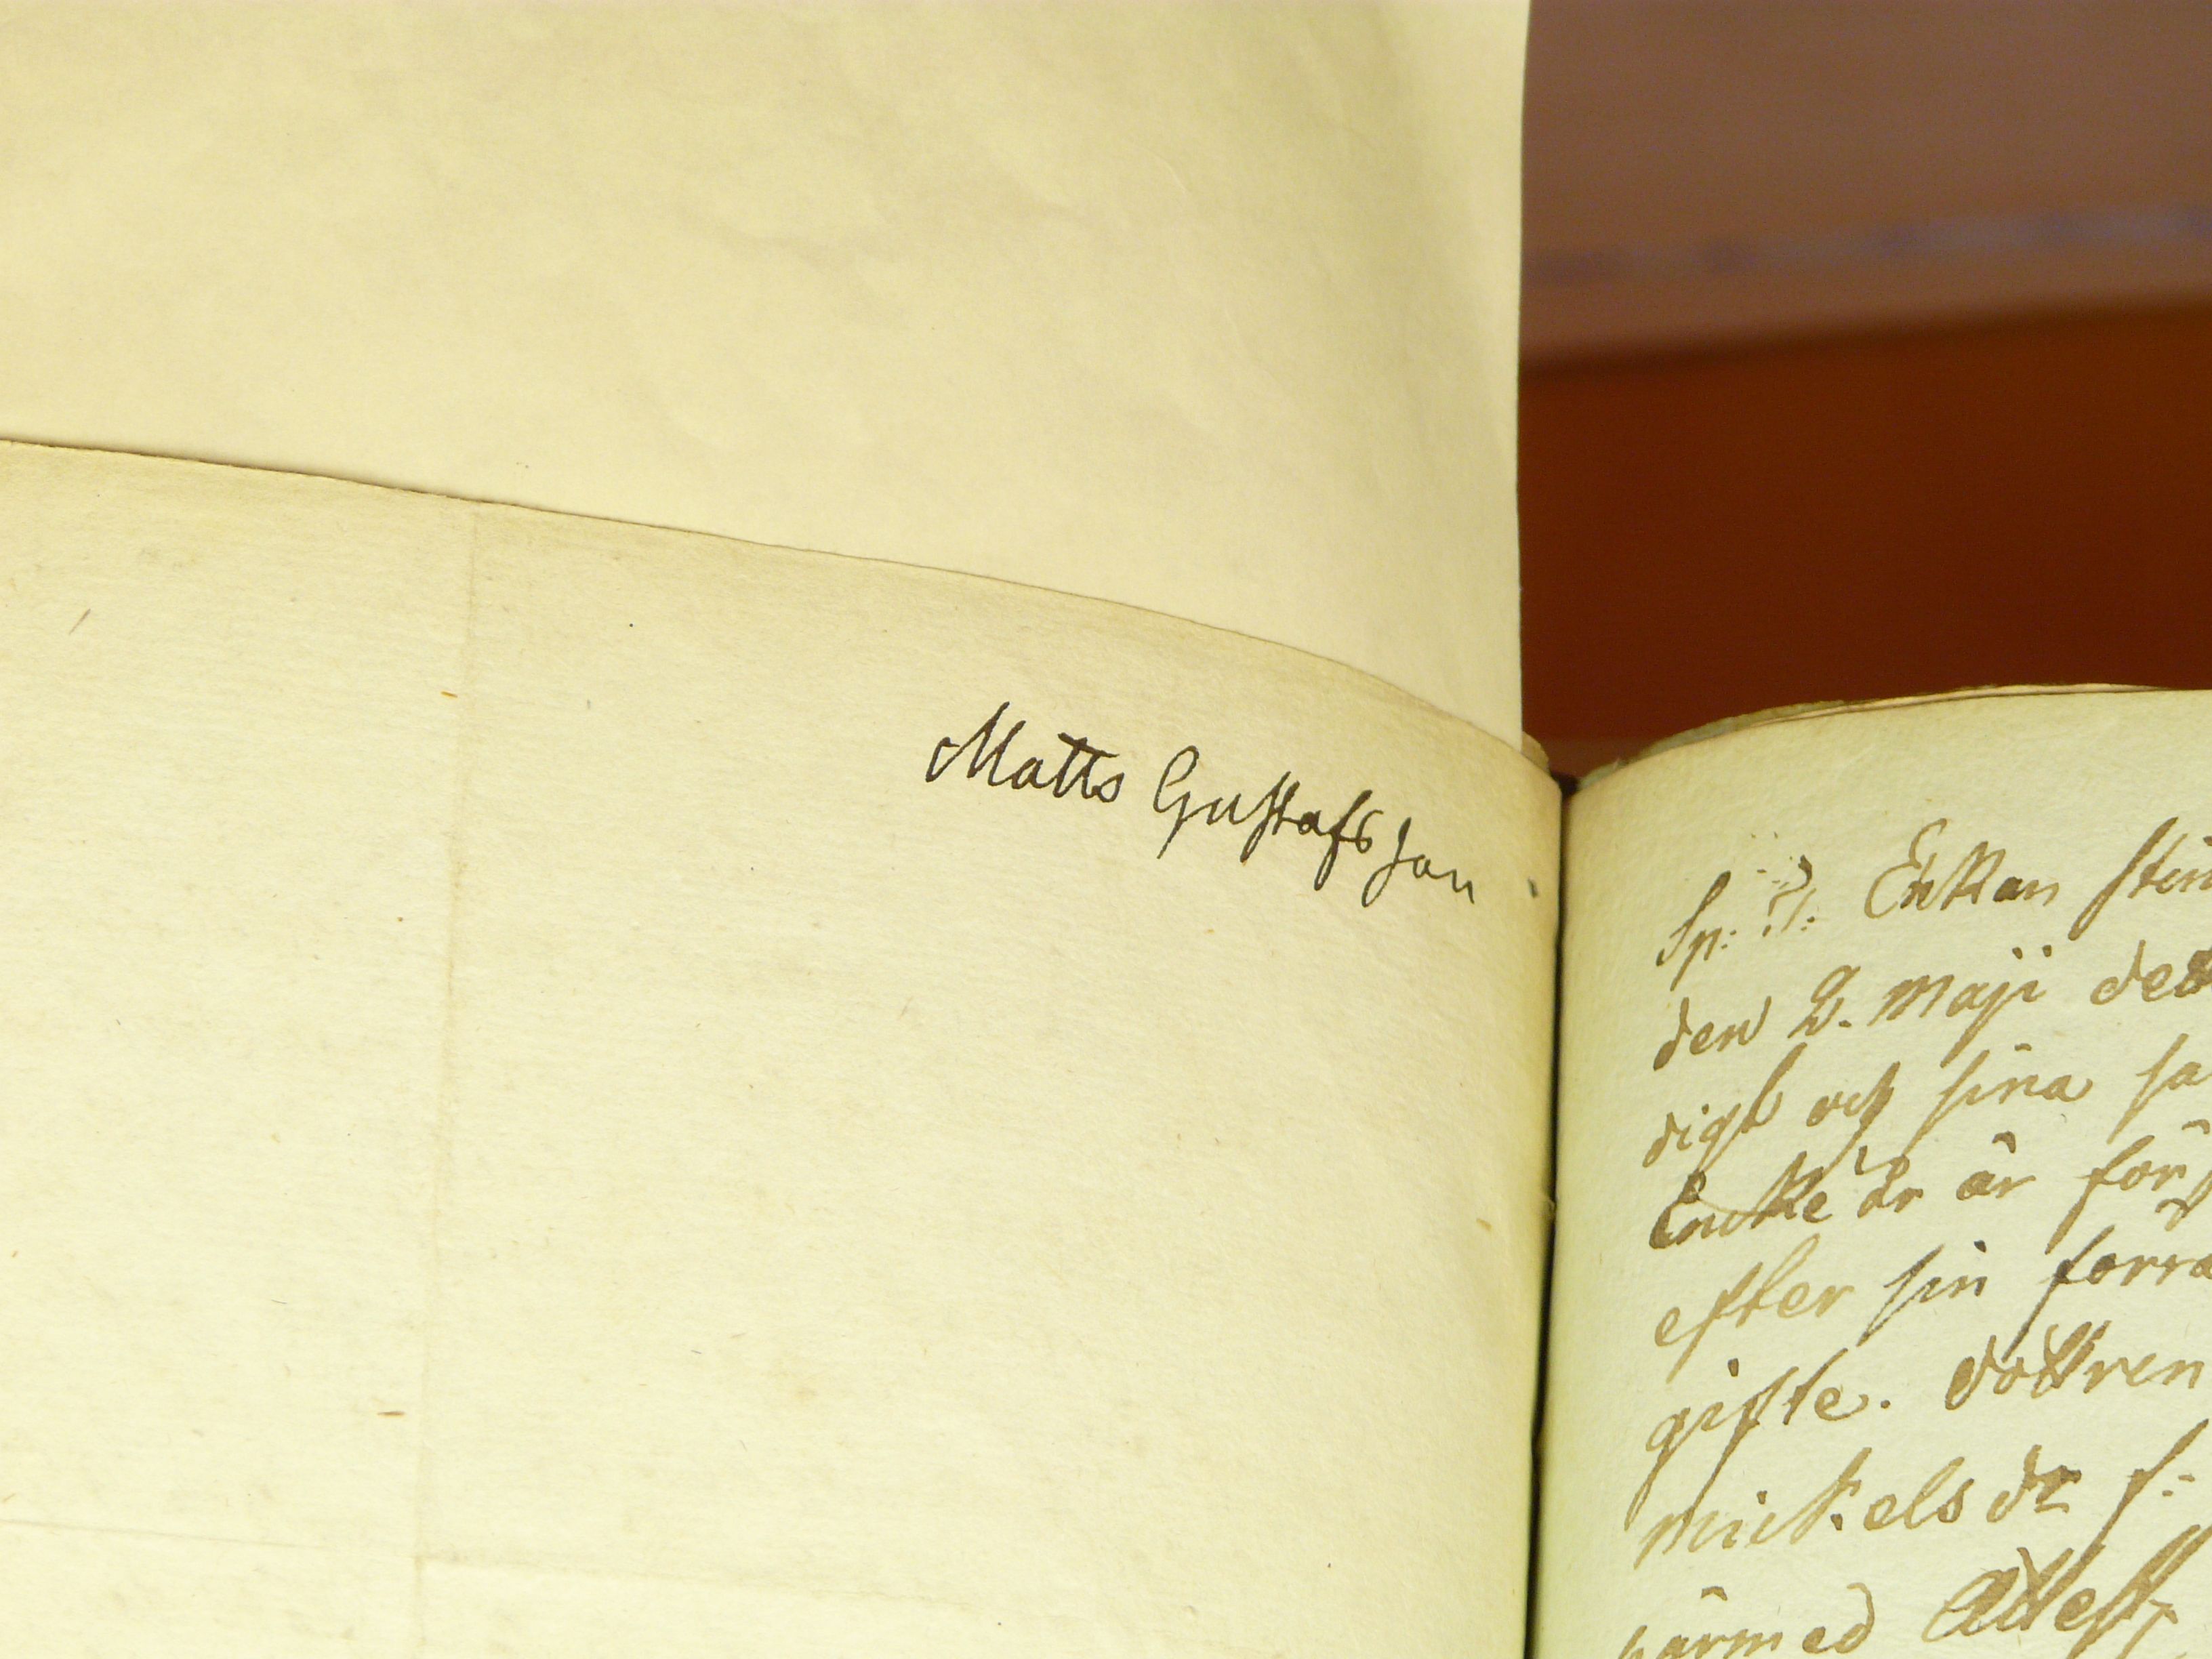 Matts Gustafsson
Sp: Enkan
den 2. Maji
digt och sina
Encke är
efter sin
gifte. dottren
mickelsdr f:
härmed Attest